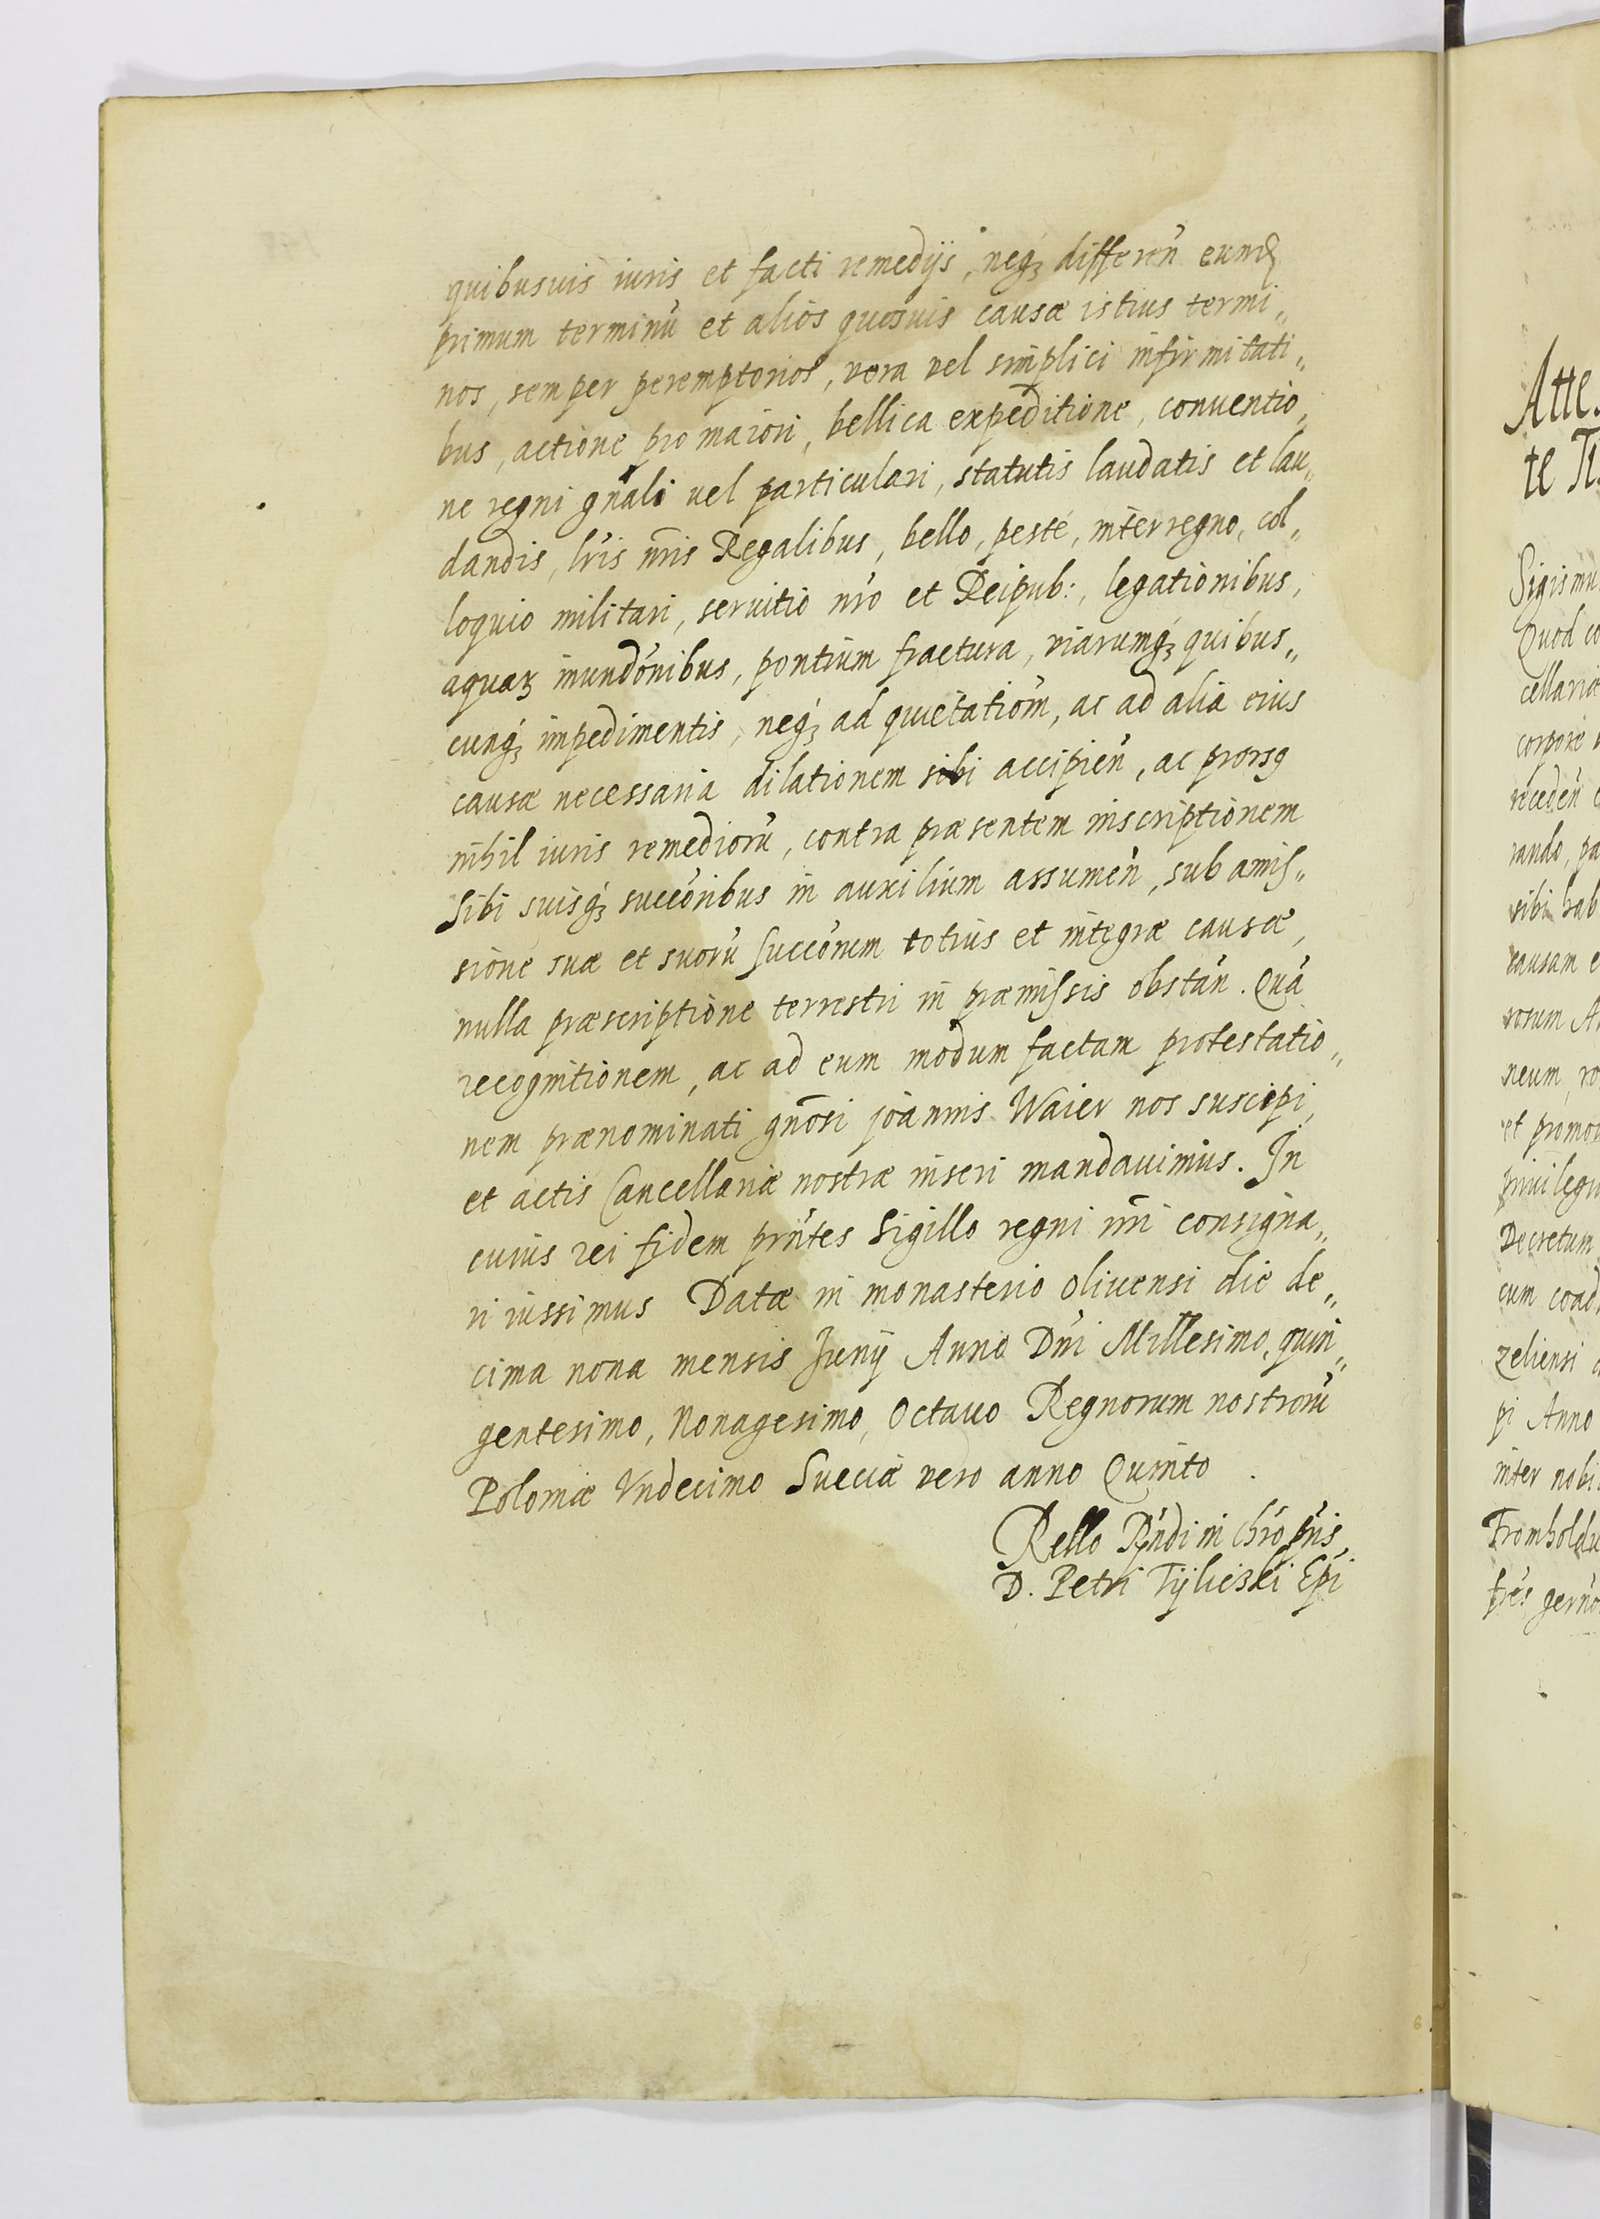 quibusuis iuris et facti remedijs, neqꝫ differeń eund
primum terminū et alios quosuis causæ istius termi„
nos, semper peremptorios, vera vel simplici infirmitati„
bus, actione pro maiori, bellica expeditione, conuentio„
ne regni gn̄ali uel particulari, statutis laudatis et lau„
dandis, lr̄is nr̄is Regalibus, bello, peste, interregno, col„
loquio militari, seruitio nr̄o et Reipub:, legationibus,
aquaꝝ inundōnibus, pontium fractura, viarumqꝫ quibus„
cunqꝫ impedimentis, neqꝫ ad quietatiōm, ac ad alia eius
causæ necessaria dilationem sibi accipień, ac prorsꝯ
nihil iuris remediorū, contra præsentem inscriptionem
Sibi suisqꝫ succōribus in auxilium assumeń, sub amis„
sione suæ et suorū succōrum totius et integræ causæ,
nulla præscriptione terrestri in præmissis obstań. Quā
recognitionem, ac ad eum modum factam protestatio„
nem prænominati gn̄osi joannis Waier nos suscepi,
et actis Cancellariæ nostræ inseri mandauimus. In
cuius rei fidem pn̄tes Sigillo regni nr̄i consigna„
ri iussimus Datæ in monasterio Oliuensi die de„
cima nona mensis Junij Anno Dn̄i Millesimo, quin„
gentesimo, Nonagesimo, Octauo Regnorum nostrorū
Poloniæ Vndecimo Sueciæ vero anno Quinto
Rello Rn̄di in Chr̄o pr̄is,
D. Petri Tijliczki Ep̄i
Atte
te Ti
Sigismu
Quod co
cellariæ
corpore
recedeń
rando, pa
sibi hab
causam e
rosum A
neum, ro
et promo
priuilegi
Decretum
cum coad
zeliensi
pi Anno
inter nobi
Fromholdu
fr̄es germo